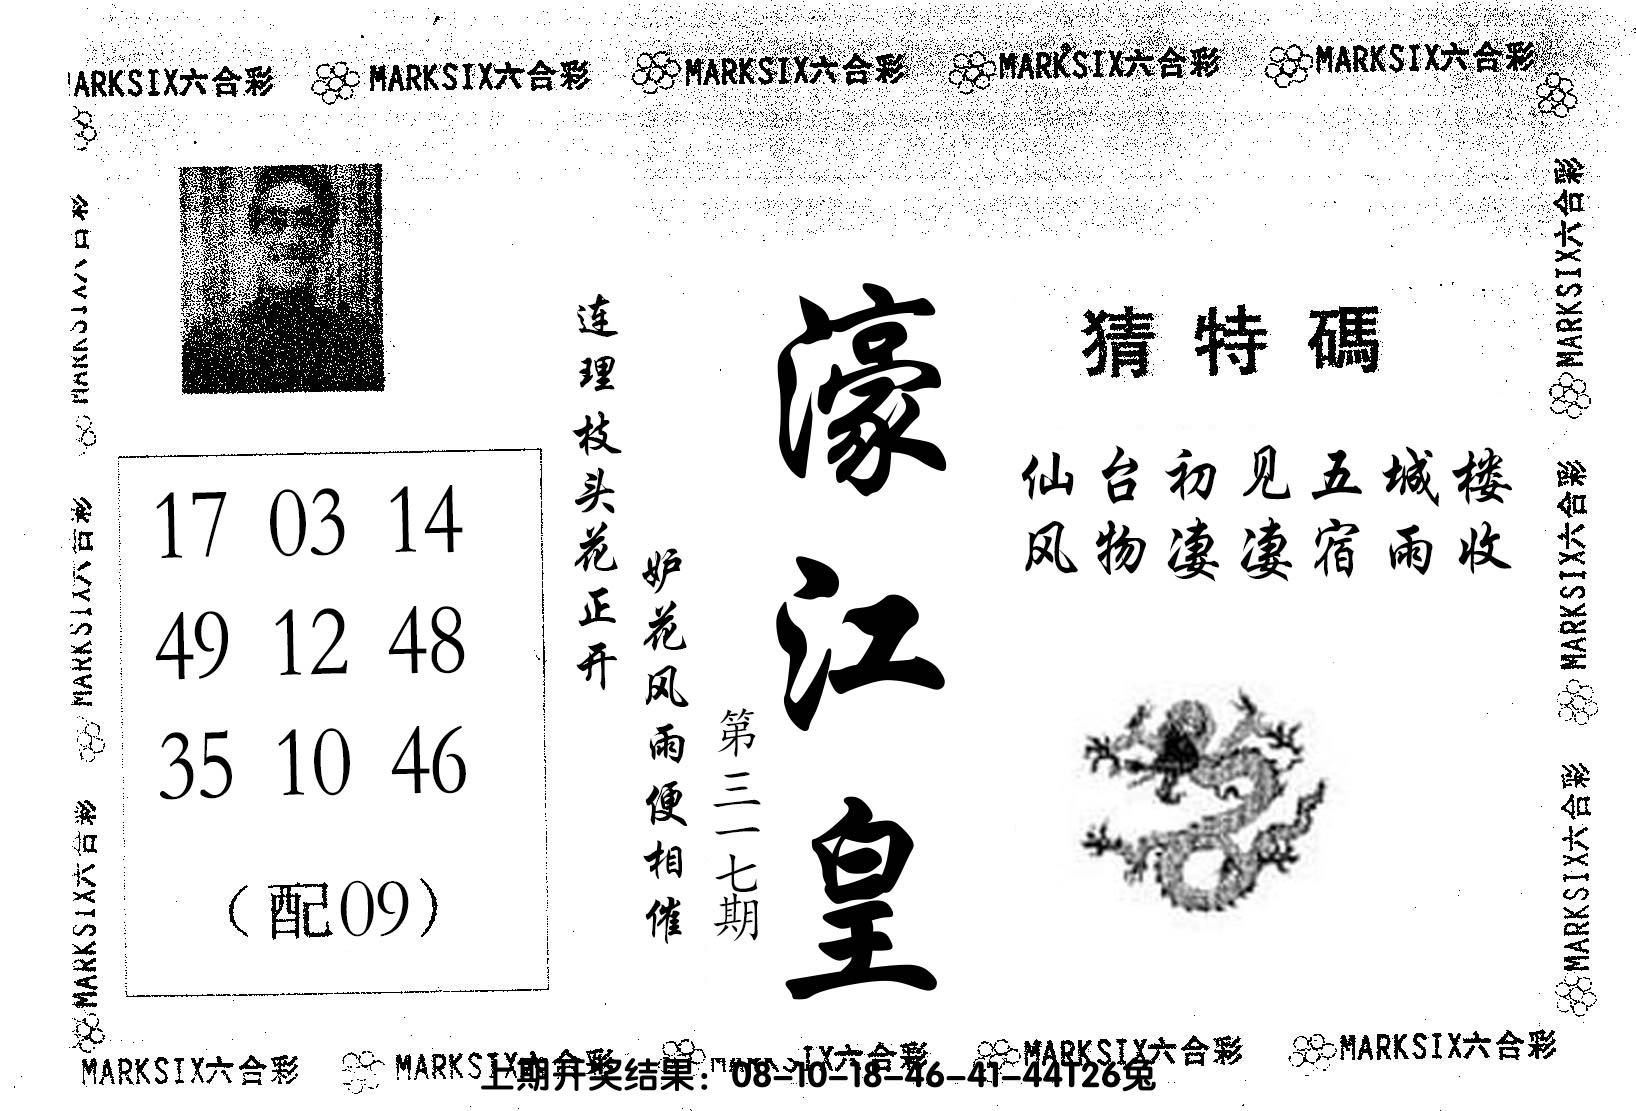 MARKSIX六合彩 MARKSIX六合彩 MARKSIX六合彩 MARKSIX六合彩 MARKSIX六合彩
MARKSIX六合彩
MARKSIX六合彩
MARKSIX六合彩
17 03 14
49 12 48
35 10 46
(配09)
连理枝头花正开
妒花风雨便相催
第三一七期
濠江皇
猜特碼
仙台初见五城楼
风物凄凄宿雨收
MARKSIX六合彩
MARKSIX六合彩
MARKSIX六合彩
MARKSIX六合彩 MARKSIX六合彩 MARKSIX六合彩 MARKSIX六合彩 MARKSIX六合彩
上期开奖结果：08-10-18-46-41-44T26兔